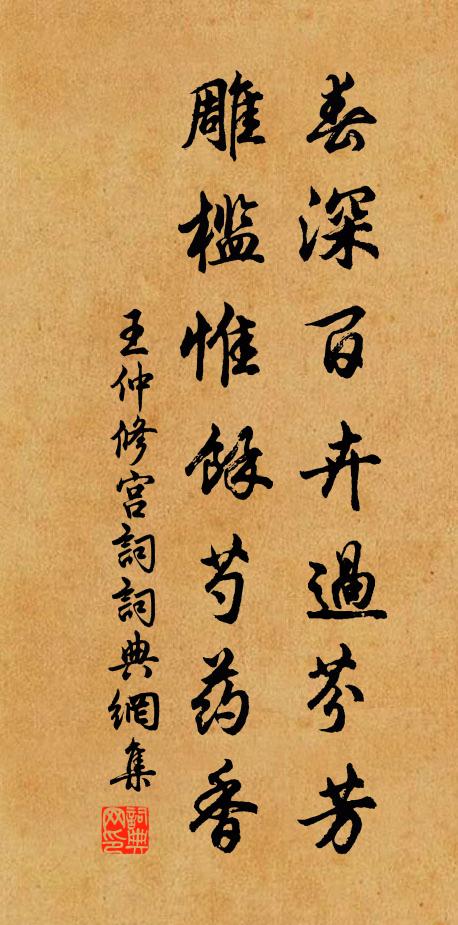 春深百卉過芬芳
雕檻惟餘芍药香
王仲修宫詞詞典網集
詞典網印